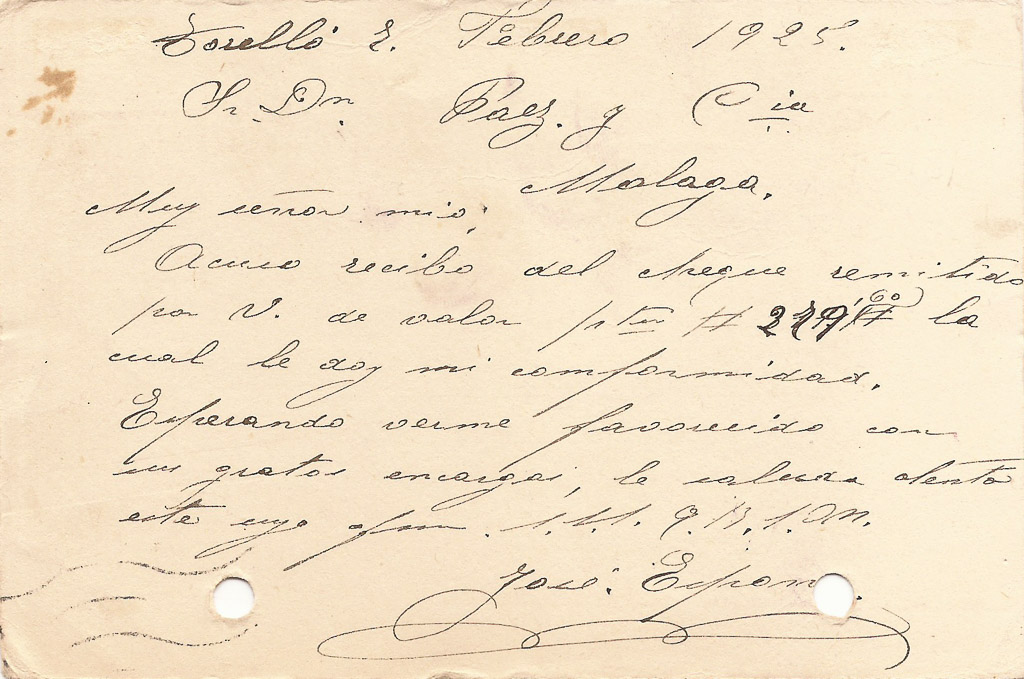 Torelló 2. Febrero 1925.
Sr. Dn. Paez. y Cia
Malaga.
Muy señor mio;
Acuso recibo del cheque remitido
por V. de valor ptas # # la
cual le doy mi comformidad.
Esperando verme favorecido con
sus gratos encargos, le saluda atento
este suyo afmo. s.s.s. q.b.s.m.
José. Espona.